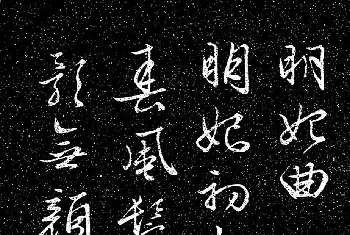 明妃曲
明妃初
春風鬢
影無顏